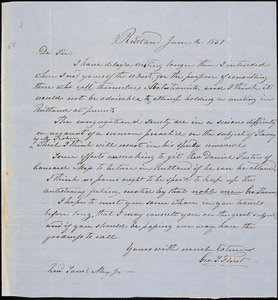 Rutland June 16 1847
Dr Sir,
I have delayed writing longer than I intended
when I received yours of the for the purpose of consulting
those who call themselves Abolitionists, and I think it
would not be advisable to attempt holding a meeting in
Rutland at present
The congregational Society are in a serious difficulty
on account of a sermon preached on the subject of Slavery
by the Pastor
which I think will result in his speedy removal
Some efforts are making to get Rev Daniel Foster of
Concord Mass to lecture in Rutland if he can be obtained
I think no pains ought to be spared to keep up the
antislavery
I hope to meet you some where in you
before long, that I may consult you on the great subject
and if you should be passing any way have the
goodness to call
Yours with much esteem
Geo. J. Flint
Rev. Saml May Jr